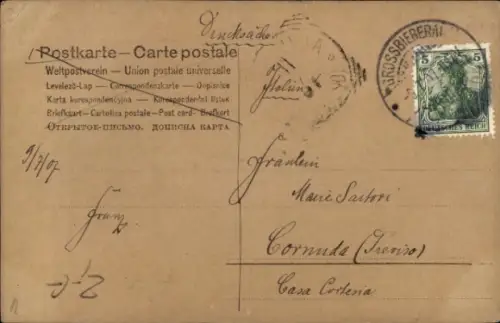 Drucksache
Postkarte – Carte postale
Weltpostverein – Union postale universelle
Levelező-Lap – Correspondenzkarte – Dopisnice
Karta korespondencyjna – Korespondenční lístek
Briefkaart – Cartolina postale – Post card – Brefkort
Открытое письмо. Дописна карта
GROSSBIEBERAU
5 5
DEUTSCHES REICH
(Italien)
9/7/07
Fräulein
Marie Sartori
Franz
Cornuda (Treviso)
Casa Corteria